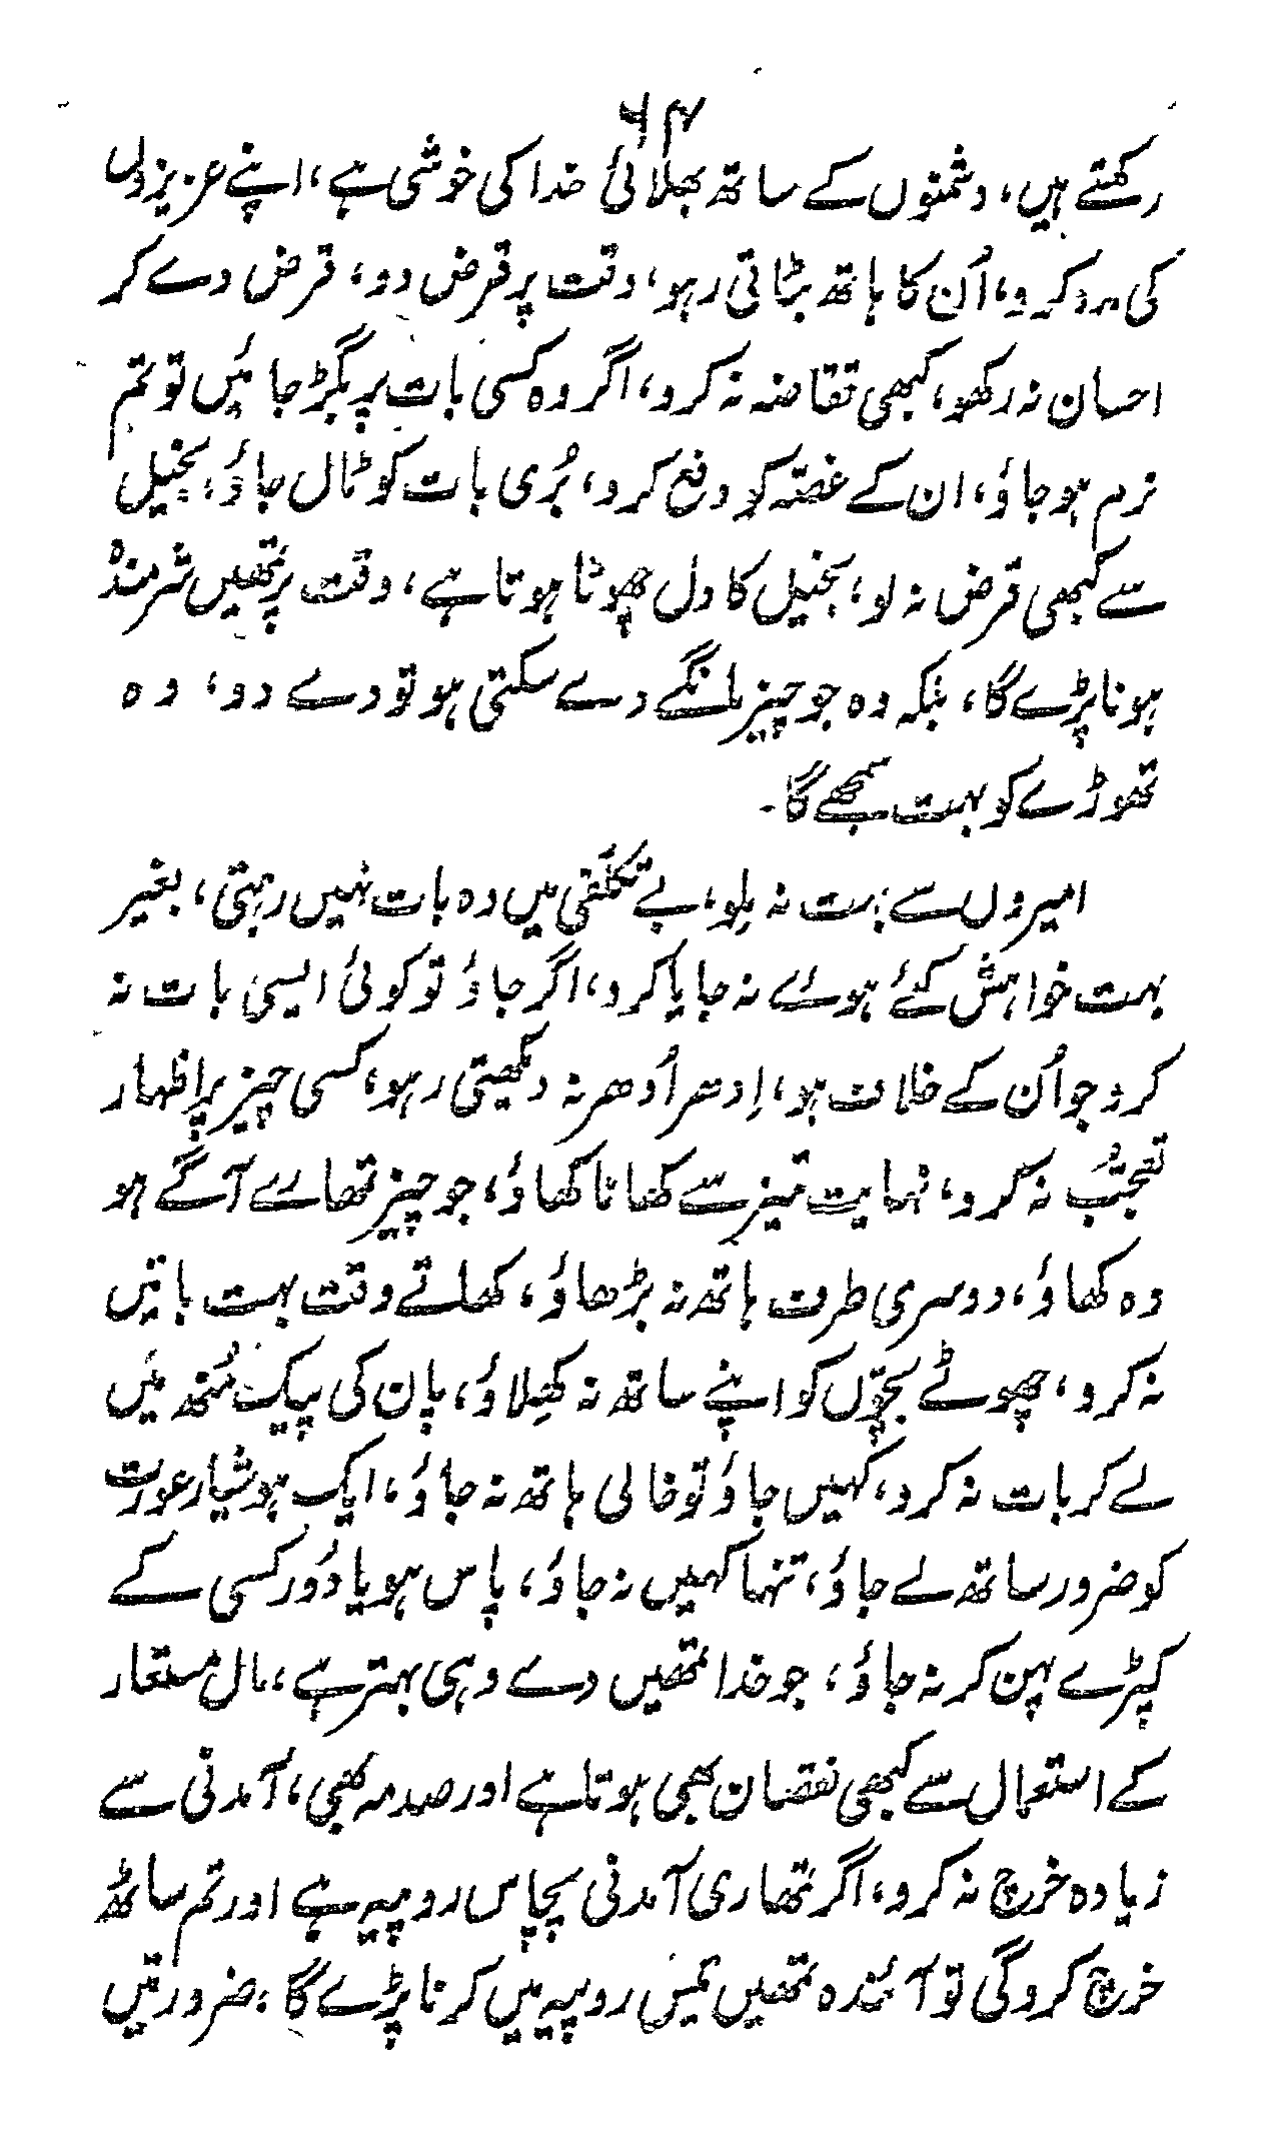 ۶۴
رکھتے ہیں، دشمنوں کے ساتھ بھلائی خدا کی خوشی ہے، اپنے عزیزوں
کی مدد کرو، اُن کا ہاتھ بٹاتی رہو، وقت پر قرض دو، قرض دے کر
احسان نہ رکھو، کبھی تقاضہ نہ کرو، اگر وہ کسی بات پر بگڑ جائیں تو تم
نرم ہو جاؤ، ان کے غصّہ کو دفع کرو، بُری بات کو ٹال جاؤ، بخیل
سے کبھی قرض نہ لو، بخیل کا دل چھوٹا ہوتا ہے، وقت پر تمھیں شرمندہ
ہونا پڑے گا، بلکہ وہ جو چیز مانگے دے سکتی ہو تو دے دو، وہ
تھوڑے کو بہت سمجھے گا۔
امیروں سے بہت نہ مِلو، بے تکلّفی میں وہ بات نہیں رہتی، بغیر
بہت خواہش کئے ہوے نہ جایا کرو، اگر جاؤ تو کوئی ایسی بات نہ
کرو جو اُن کے خلاف ہو، اِدھر اُدھر نہ دیکھتی رہو، کسی چیز پر اظہار
تعجّب نہ کرو، نہایت تمیز سے کھانا کھاؤ، جو چیز تمھارے آگے ہو
وہ کھاؤ، دوسری طرف ہاتھ نہ بڑھاؤ، کھاتے وقت بہت باتیں
نہ کرو، چھوٹے بچّوں کو اپنے ساتھ نہ کھِلاؤ، پان کی پیک مُنھ میں
لے کر بات نہ کرو، کہیں جاؤ تو خالی ہاتھ نہ جاؤ، ایک ہوشیار عورت
کو ضرور ساتھ لے جاؤ، تنہا کہیں نہ جاؤ، پاس ہو یا دُور کسی کے
کپڑے پہن کر نہ جاؤ، جو خدا تمھیں دے وہی بہتر ہے، مال مستعار
کے استعمال سے کبھی نقصان بھی ہوتا ہے اور صدمہ بھی، آمدنی سے
زیادہ خرچ نہ کرو، اگر تمھاری آمدنی پچاس روپیہ ہے اور تم ساٹھ
خرچ کرو گی تو آئندہ تمھیں تیس روپیہ میں کرنا پڑے گا، ضرورتیں